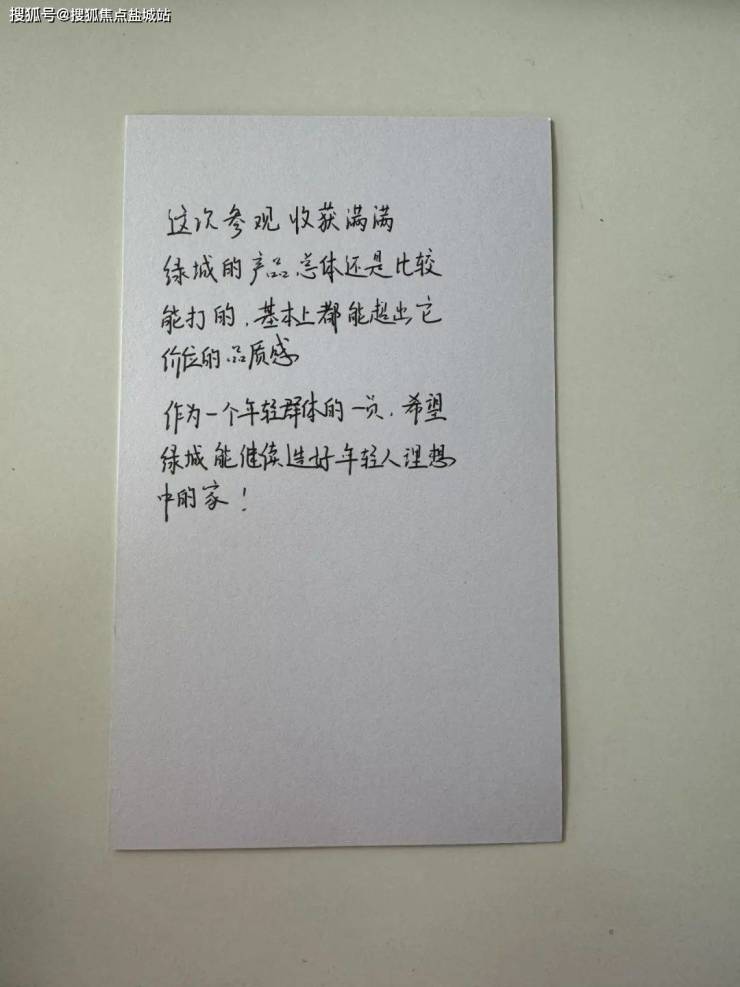 搜狐号@搜狐焦点盐城站
这次参观收获满满
绿城的产品总体还是比较
能打的，基本上都能超出它
价位的品质感
作为一个年轻群体的一员，希望
绿城能继续造好年轻人理想
中的家！